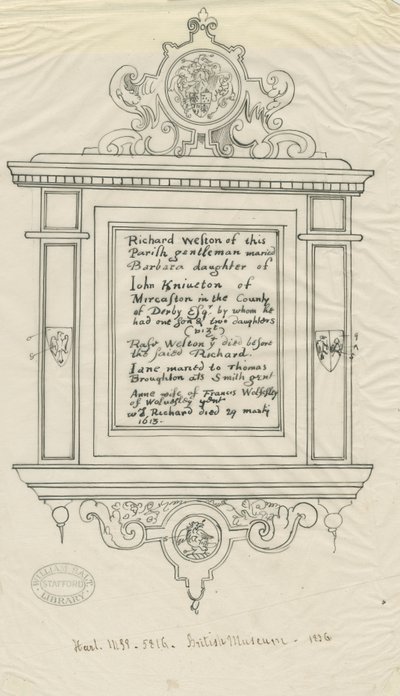 Richard Weston of this
Parish gentleman maried
Barbara daughter of
Iohn Kniueton of
Mircaston in the County
of Derby Esqr. by whom he
had one son & two daughters
(vizt)
Rafe Weston yt died before
the saied Richard.
Iane maried to Thomas
Broughton als Smith gent
Anne wife of Francis Wolfesley
of Woluesley gent
wd. Richard died 29 march
1613.
WILLIAM SALT
STAFFORD
LIBRARY
Harl. MSS. 5816. British Museum - 1836